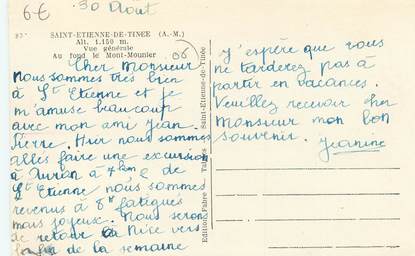 6€
30 Aout
SAINT-ETIENNE-DE-TINEE (A.-M.)
Alt. 1.150 m.
Vue générale
Au fond le Mont-Mounier
06
Cher Monsieur
Nous sommes très bien
à St Etienne et je
m'amuse beaucoup
avec mon ami Jean
Pierre. Hier nous sommes
allés faire une excursion
à Auron à 7 km de
St Etienne nous sommes
revenus à 8h fatigués
mais joyeux. Nous serons
de retour à Nice vers
la fin de la semaine
Edition Fabre
Tabacs
Saint-Etienne-de-Tinée
J'espère que vous
ne tarderez pas à
partir en vacances.
Veuillez recevoir cher
Monsieur mon bon
souvenir.
Jeanine